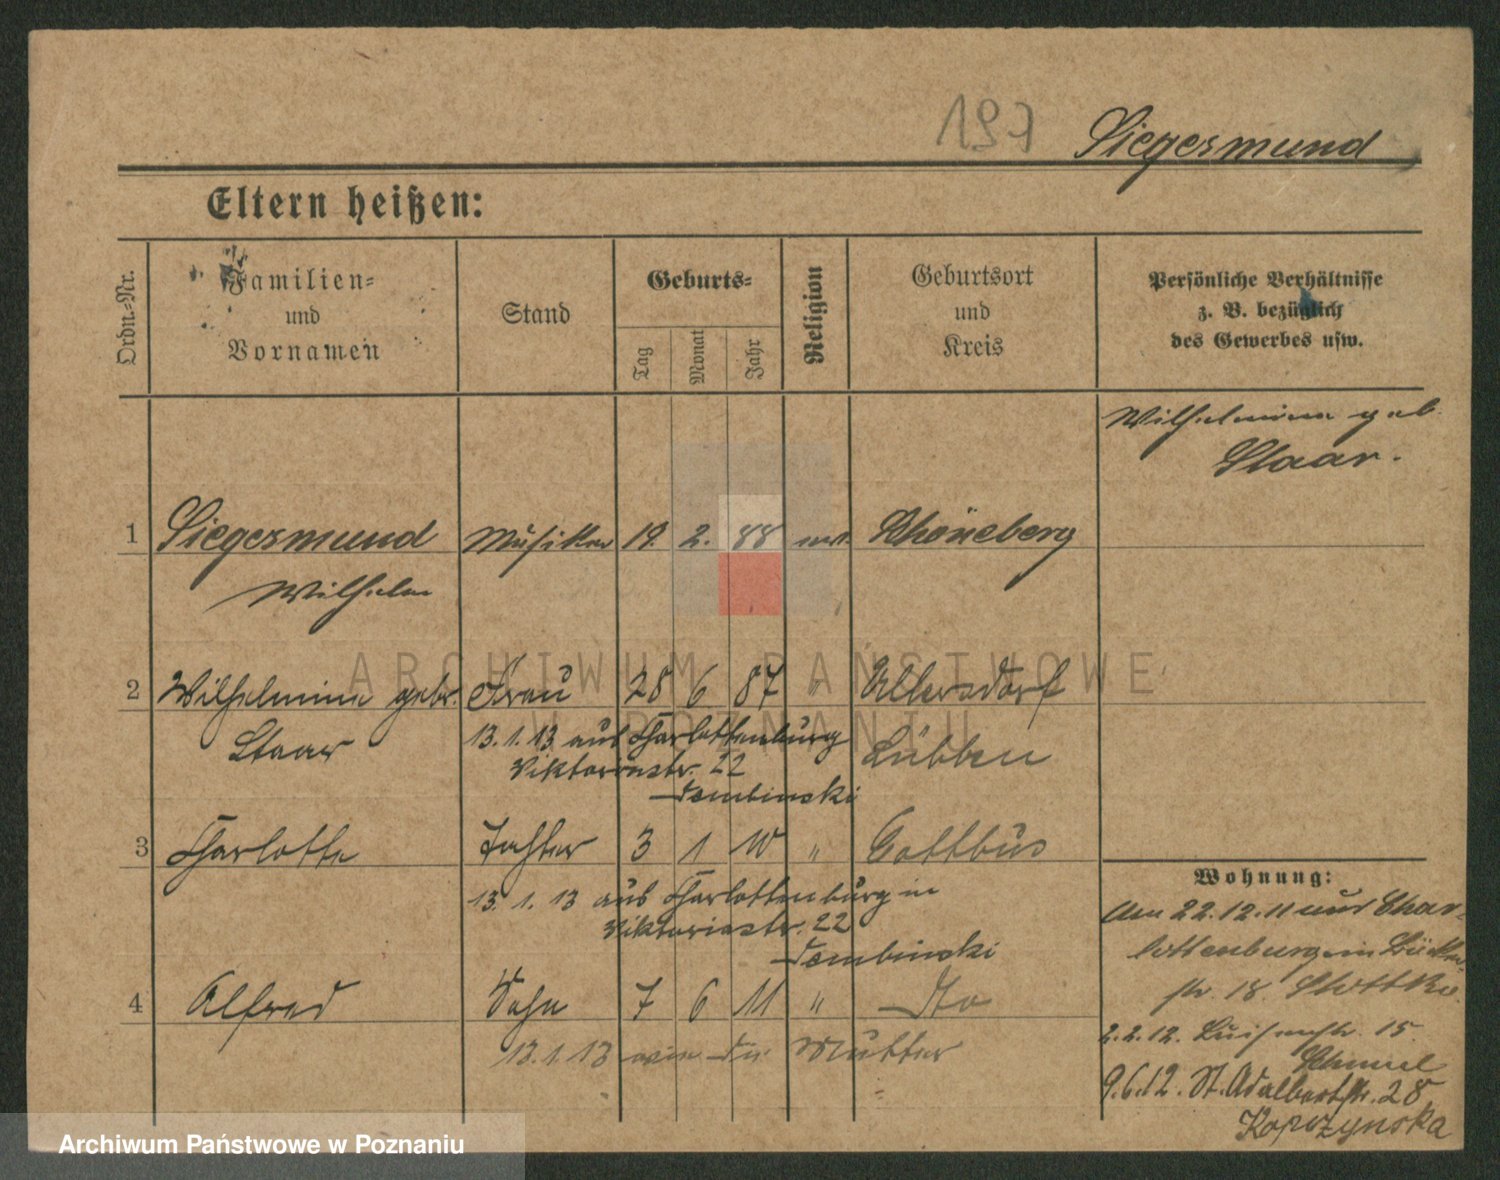 197 Siegesmund
Eltern heißen:
Ordn.-Nr.
Familien-
und
Vornamen
Stand
Geburts-
Tag
Monat
Jahr
Religion
Geburtsort
und
Kreis
Persönliche Verhältnisse
z. B. bezüglich
des Gewerbes usw.
Wilhelmine geb.
Staar.
1 Siegesmund Musiker 19. 2. 88 Schöneberg
Wilhelm
2 Wilhelmine gebr. Frau 28 6 87 " Ullersdorf
Staar
Lübben
13. 1. 13 aus Charlottenburg
Viktoriastr. 22
Dembinski
3 Charlotte Tochter 3 1 10 " Cottbus
13. 1. 13 aus Charlottenburg in
Viktoriastr. 22
Dembinski
4 Alfred Sohn 7 6 11 " Do
13. 1. 13 wie die Mutter
Wohnung:
Am 22.12.11 aus Char-
lottenburg in
str. 18.
2.2.12. Luisenstr. 15
9.6.12. St. Adalbertstr. 28
Kopczynska
ARCHIWUM PAŃSTWOWE
W POZNANIU
Archiwum Państwowe w Poznaniu